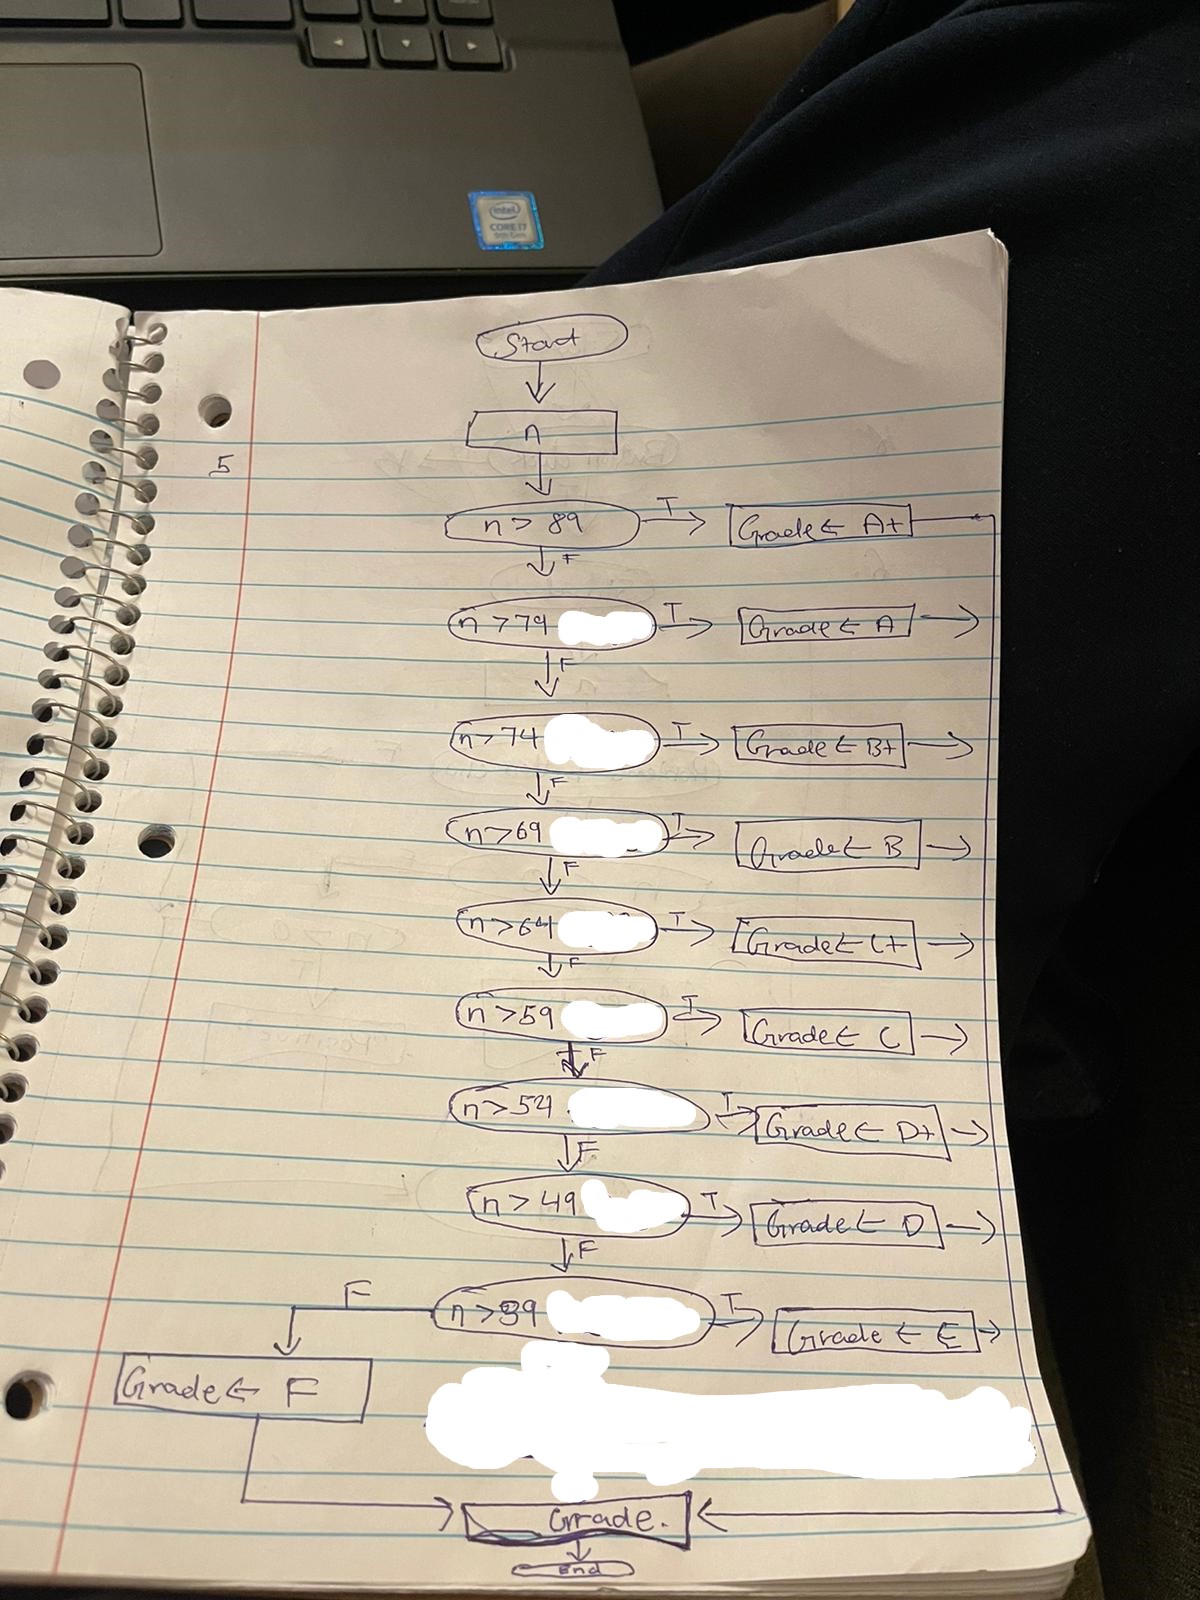 intel
CORE i7
Start
n
5
n > 89 T Grade ← A+
F
n > 79 T Grade ← A
F
n > 74 T Grade ← B+
F
n > 69 T Grade ← B
F
n > 64 T Grade ← C+
F
n > 59 T Grade ← C
F
n > 54 T Grade ← D+
F
n > 49 T Grade ← D
F
F n > 39 T Grade ← E
Grade ← F
Grade.
End